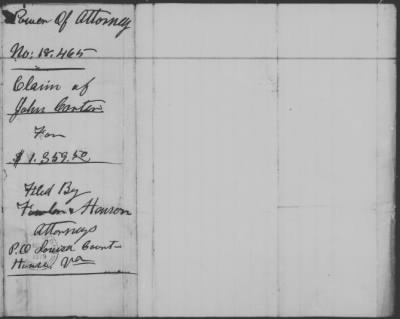 Power Of Attorney
No: 18.465
Claim of
John Carter
For
$1.359.50
Filed By
& Hanson
Attorneys
P.O Louisa Court
House, Va